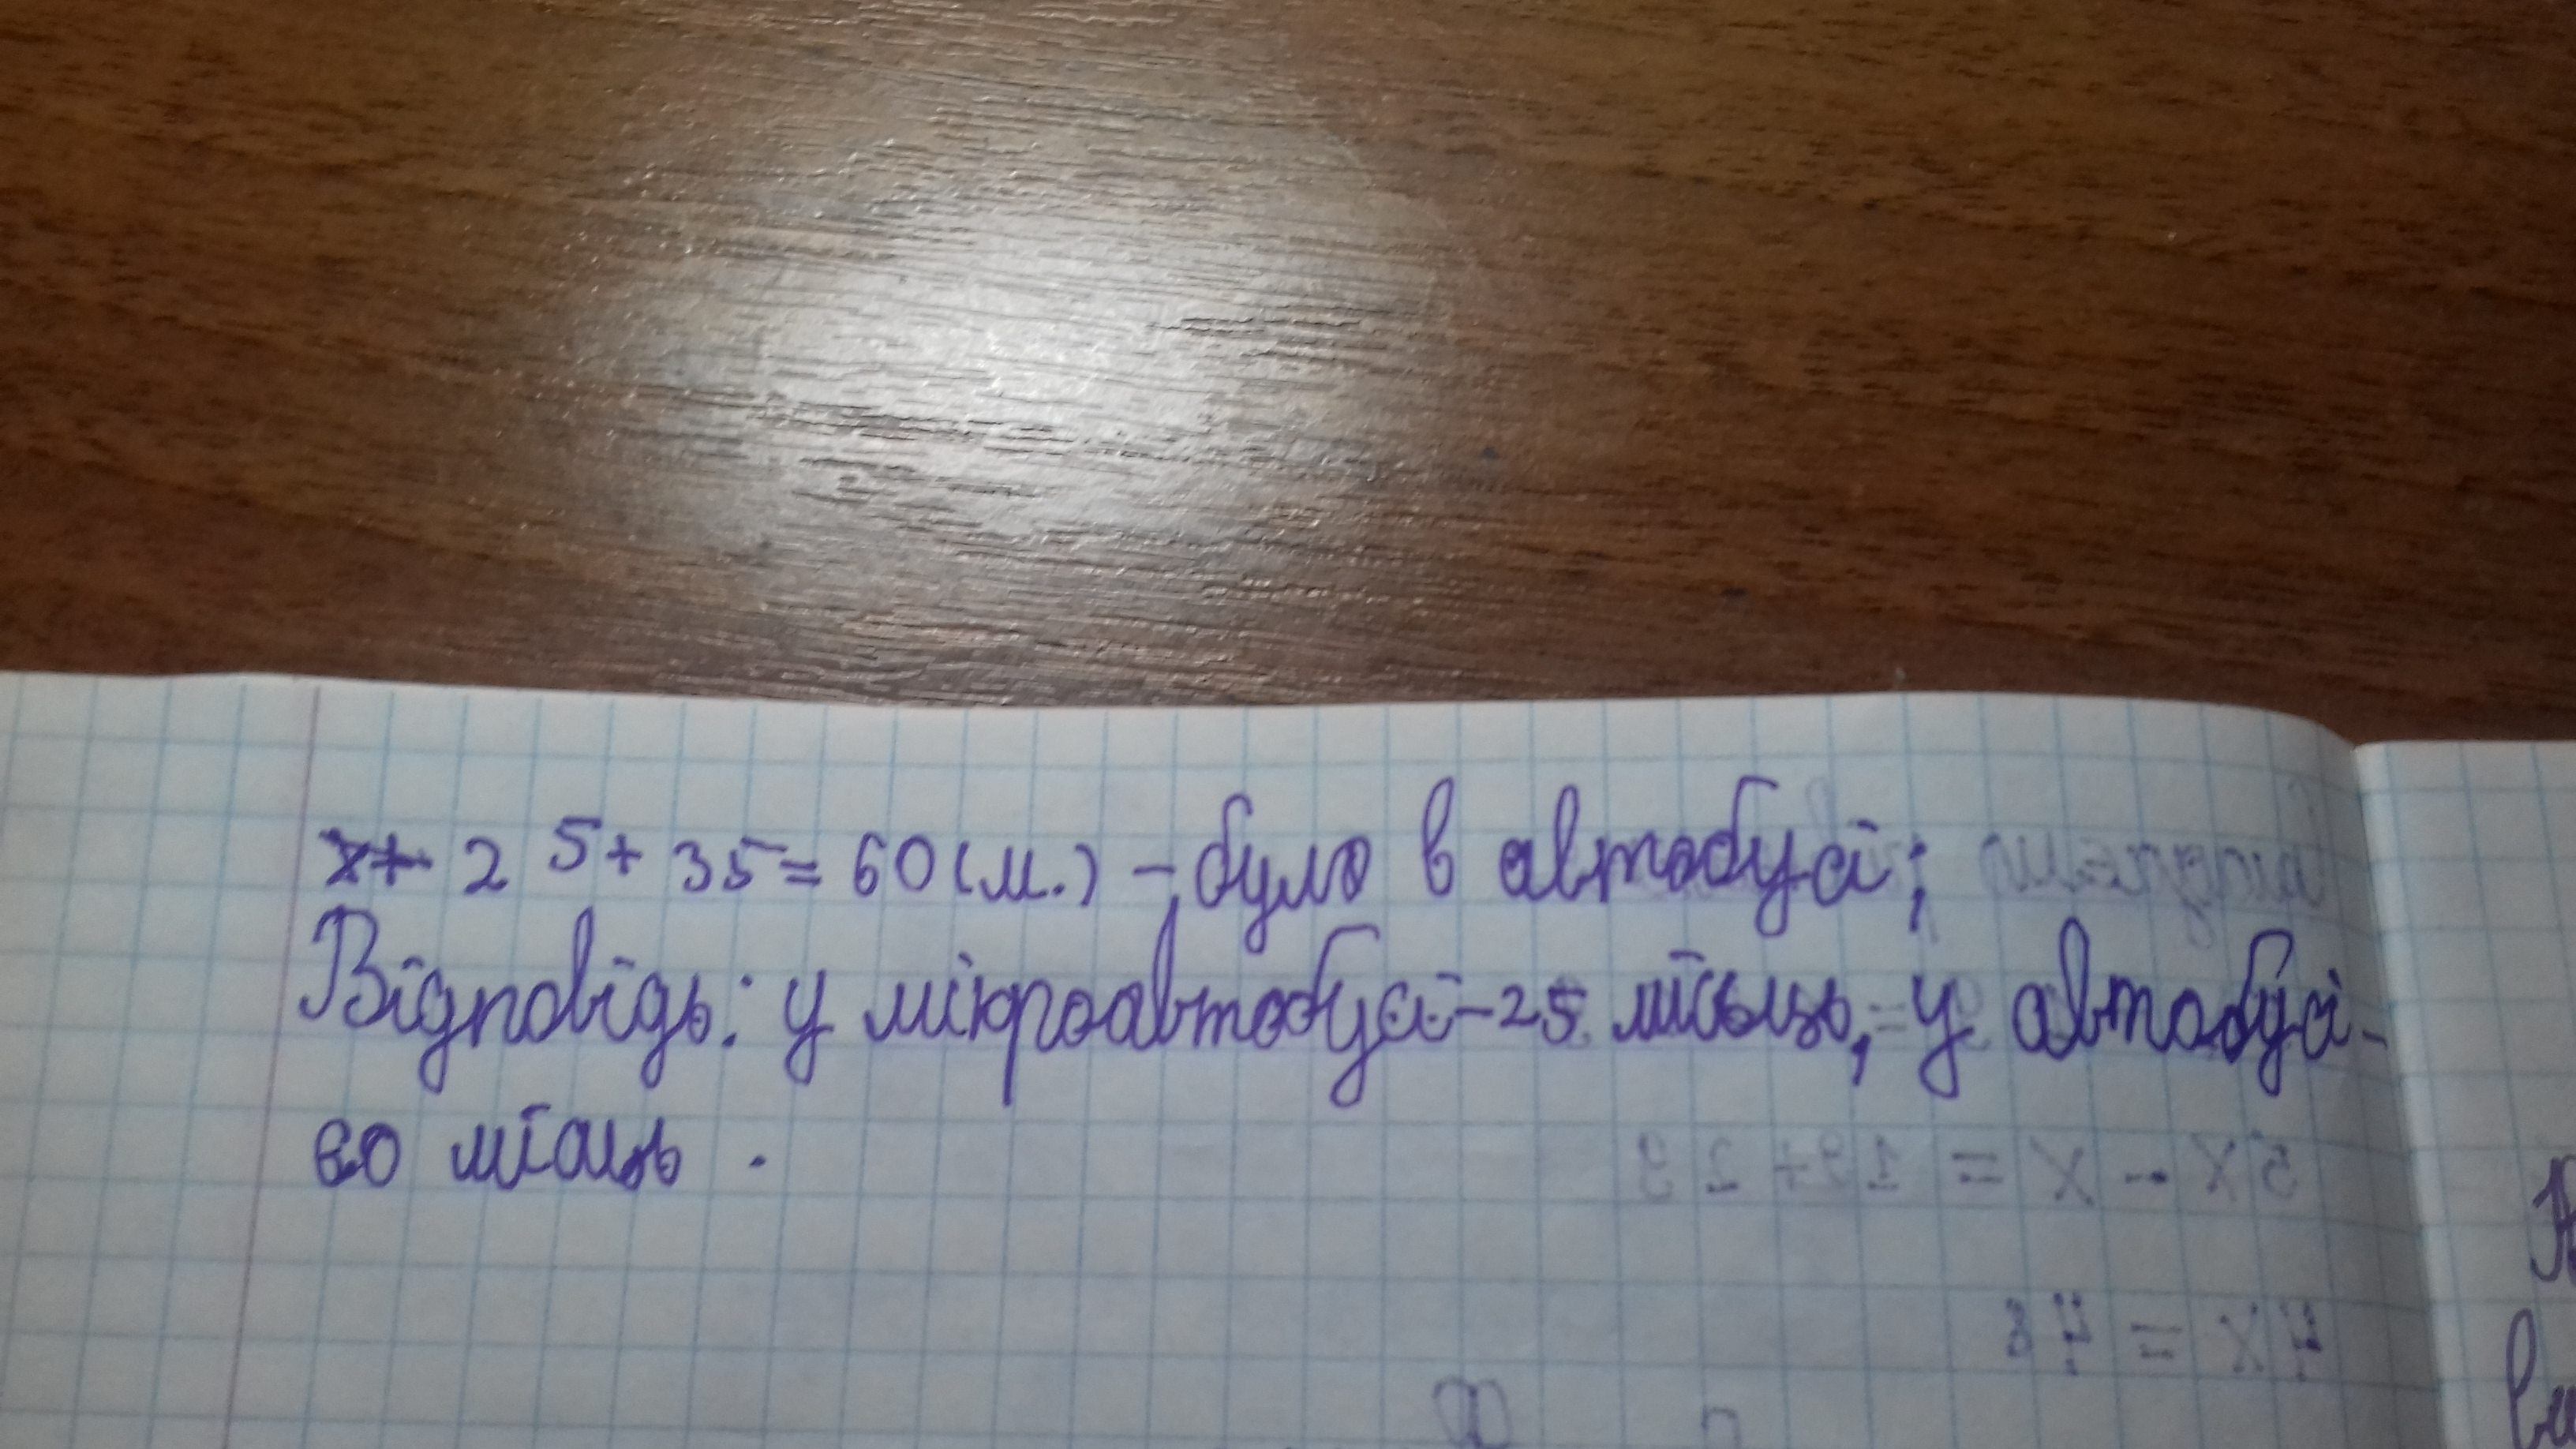 25+35=60(м.) - було в автобусі;
Відповідь: у мікроавтобусі-25 місць, у автобусі-
60 місць.
5x-x=19+29
4x=48